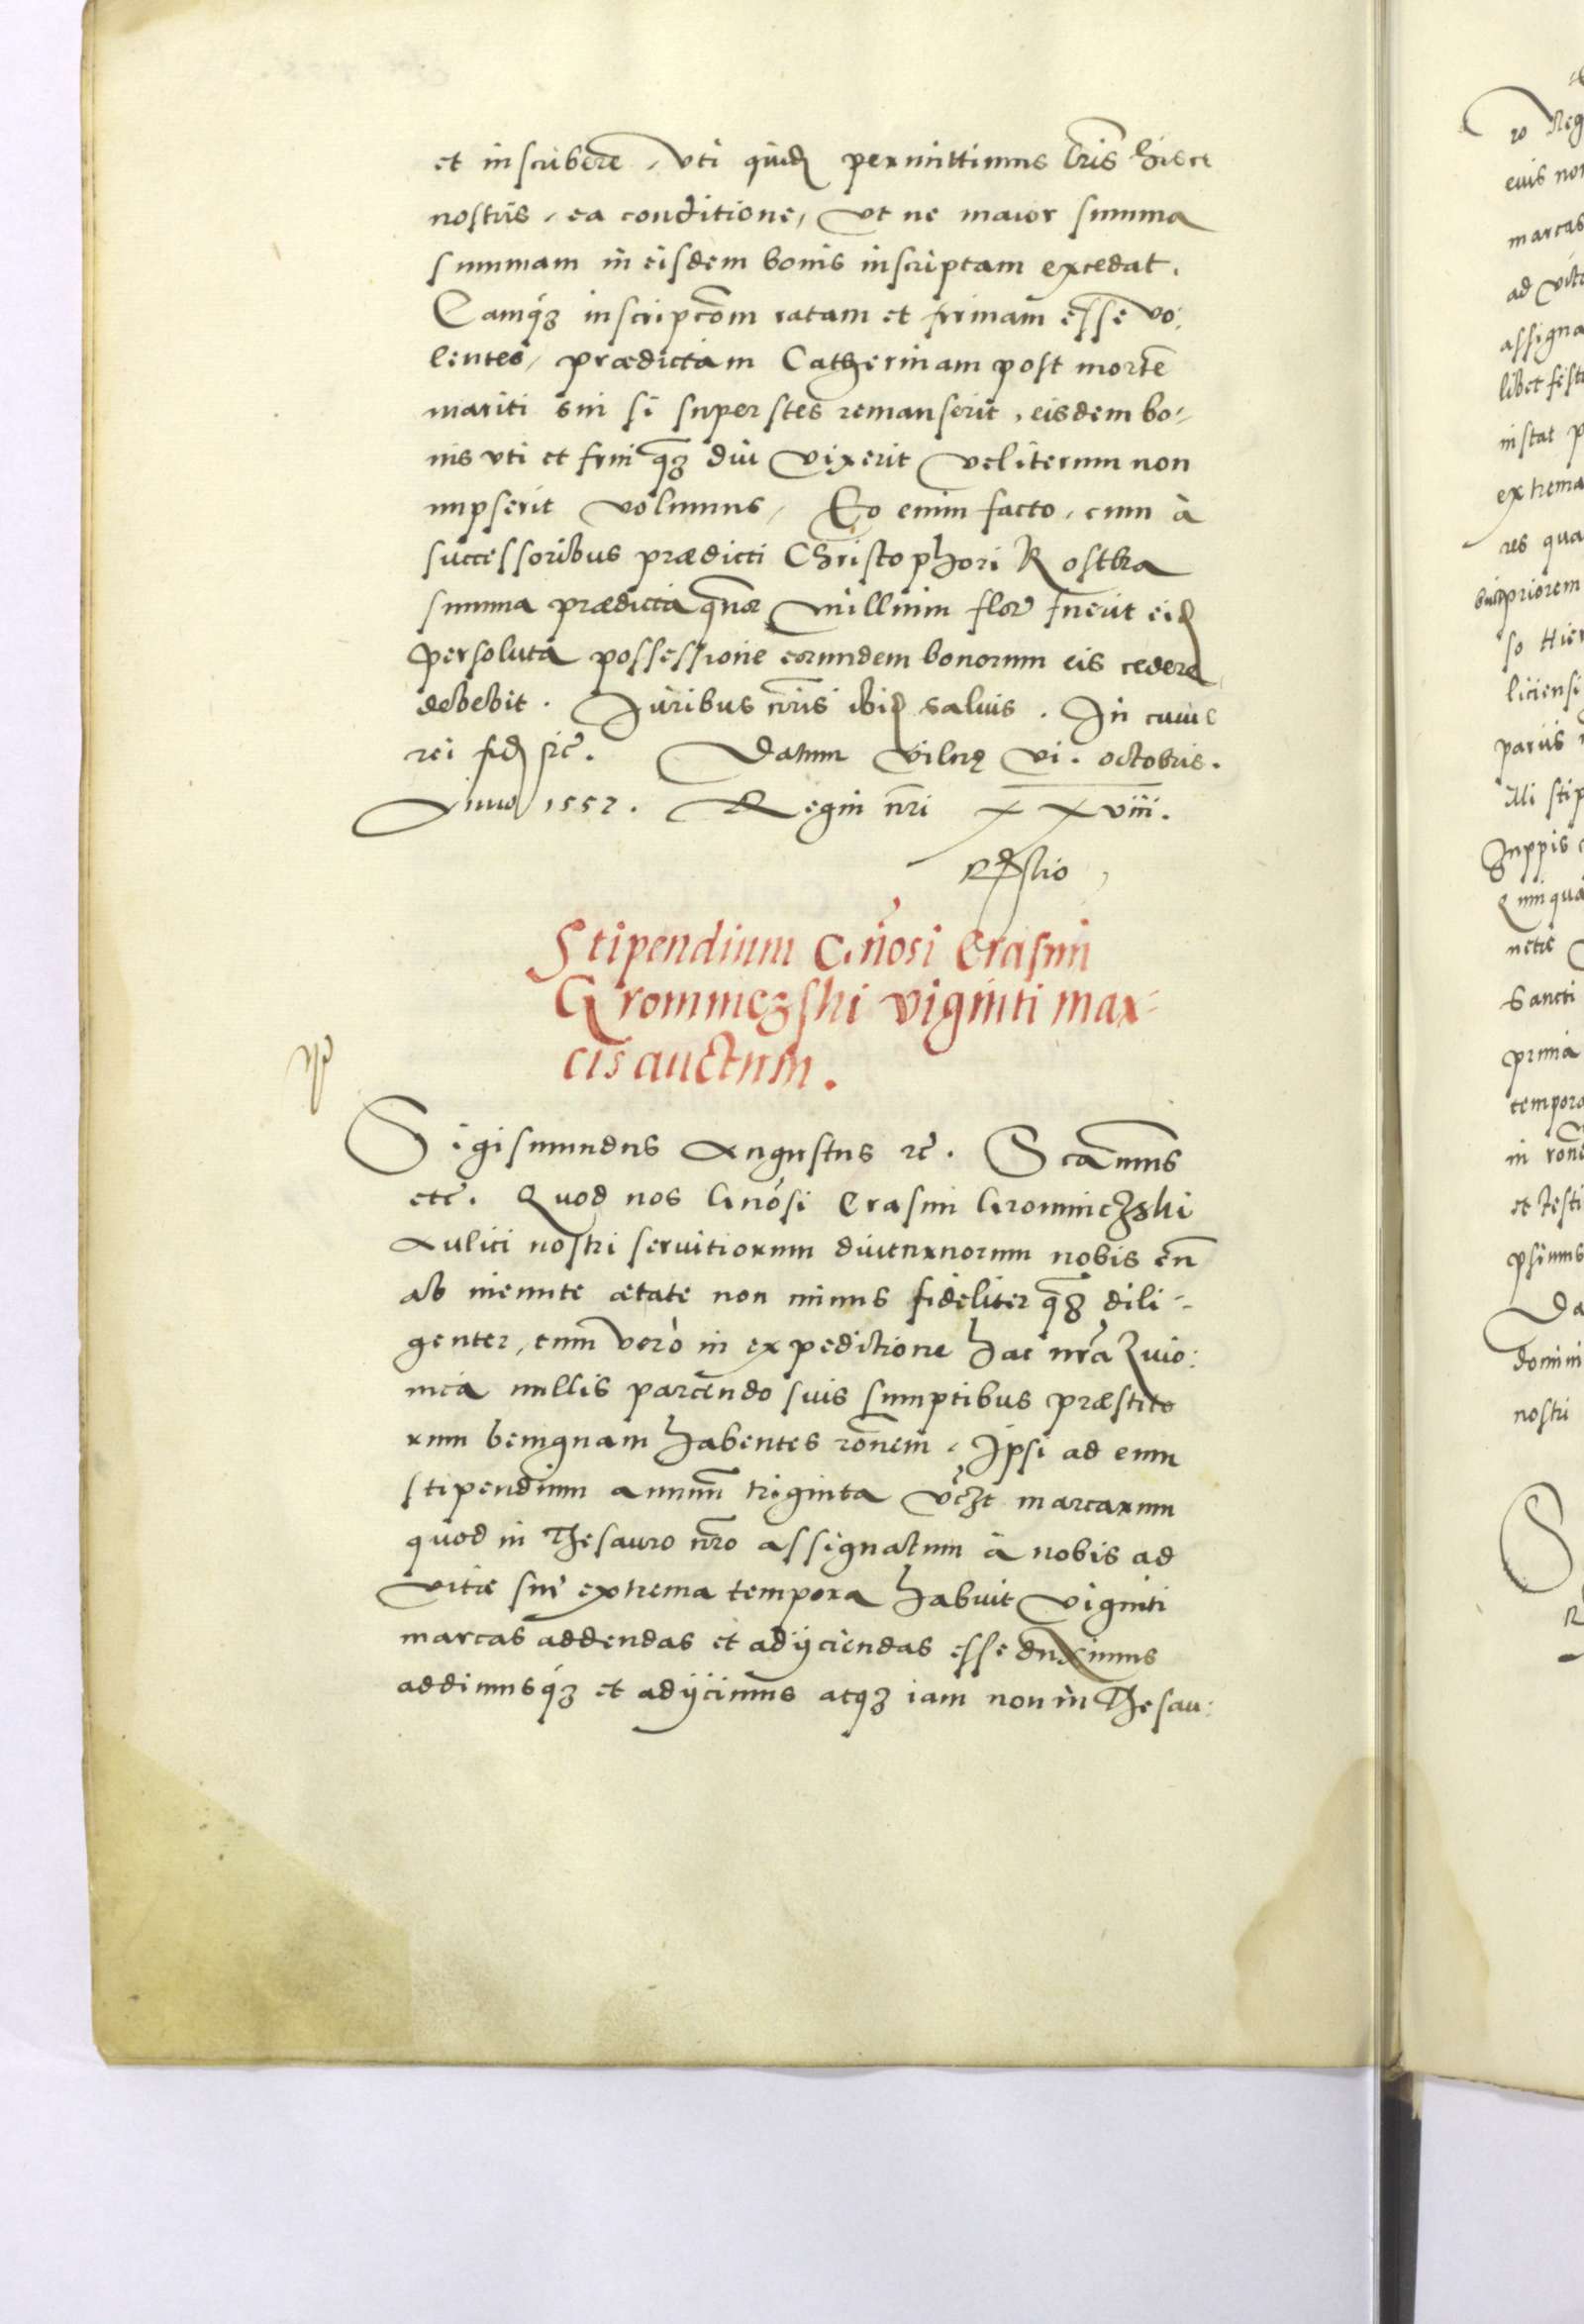 et inscribere, uti quidem permittimus lris hisce
nostris, ea conditione, ut ne maior summa
summam in eisdem bonis inscriptam excedat.
Eamq3 inscripcom ratam et firmam esse vo:
lentes, prædictam Catherinam post morte
mariti sui si superstes remanserit, eisdem bo-
nis uti et frui q3 diu vixerit vel iterum non
nupserit volumus, Eo enim facto, cum à
successoribus prædicti Christophori Kostka
summa prædicta millium flor fuerit eid
persoluta possessione eorundem bonorum eis cedere
debebit. Juribus nris ibid salvis. In cuius
rei fid sic. Datum Vilnę vi. octobris.
Anno 1557. Regni nri xxviii.
Stipendium G.nosi Erasmi
Gromniczski viginti mar-
cis auctum.
Sigismundus Augustus rc. Scamus
etc. Quod nos Gnosi Erasmi Gromniczski
Aulici nostri servitiorum diuturnorum nobis
ab ineunte ætate non minus fideliter q3 dili-
genter, cum verò in expeditione hac nra Livo:
nica nullis parcendo suis sumptibus præstito
rum benignam habentes ronem, Ipsi ad eum
stipendium annuum triginta vczt marcarum
quod in Thesauro nro assignatum à nobis ad
vitæ suæ extrema tempora habuit viginti
marcas addendas et adijciendas esse duximus
addimusq3 et adijcimus atq3 iam non in Thesau: